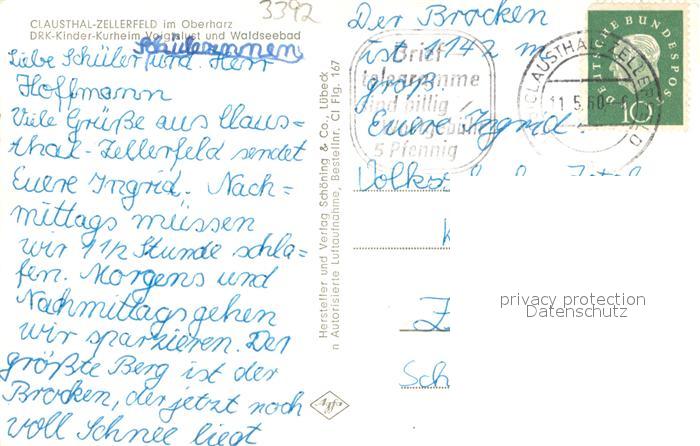 3392
CLAUSTHAL-ZELLERFELD im Oberharz
DRK-Kinder-Kurheim Voigtslust und Waldseebad
Schülerinnen
Liebe Schüler und. Herr
Hoffmann
Viele Grüße aus Claus=
thal-Zellerfeld sendet
Euere Ingrid. Nach=
mittags müssen
wir 1 1/2 Stunde schla=
fen. Morgens und
Nachmittags gehen
wir sparzieren. Der
größte Berg ist der
Brocken, der jetzt noch
voll Schnee liegt
Hersteller und Verlag Schöning & Co., Lübeck
n Autorisierte Luftaufnahme, Bestellnr. Cl Fig. 167
Der Brocken
ist 1142 m
groß.
Euere Ingrid
Brief-
telegramme
sind billig
5 Pfennig
CLAUSTHAL-ZELLERFELD
11.5.60
DEUTSCHE BUNDESPOST
10
Volkss
Z
Sch
privacy protection
Datenschutz